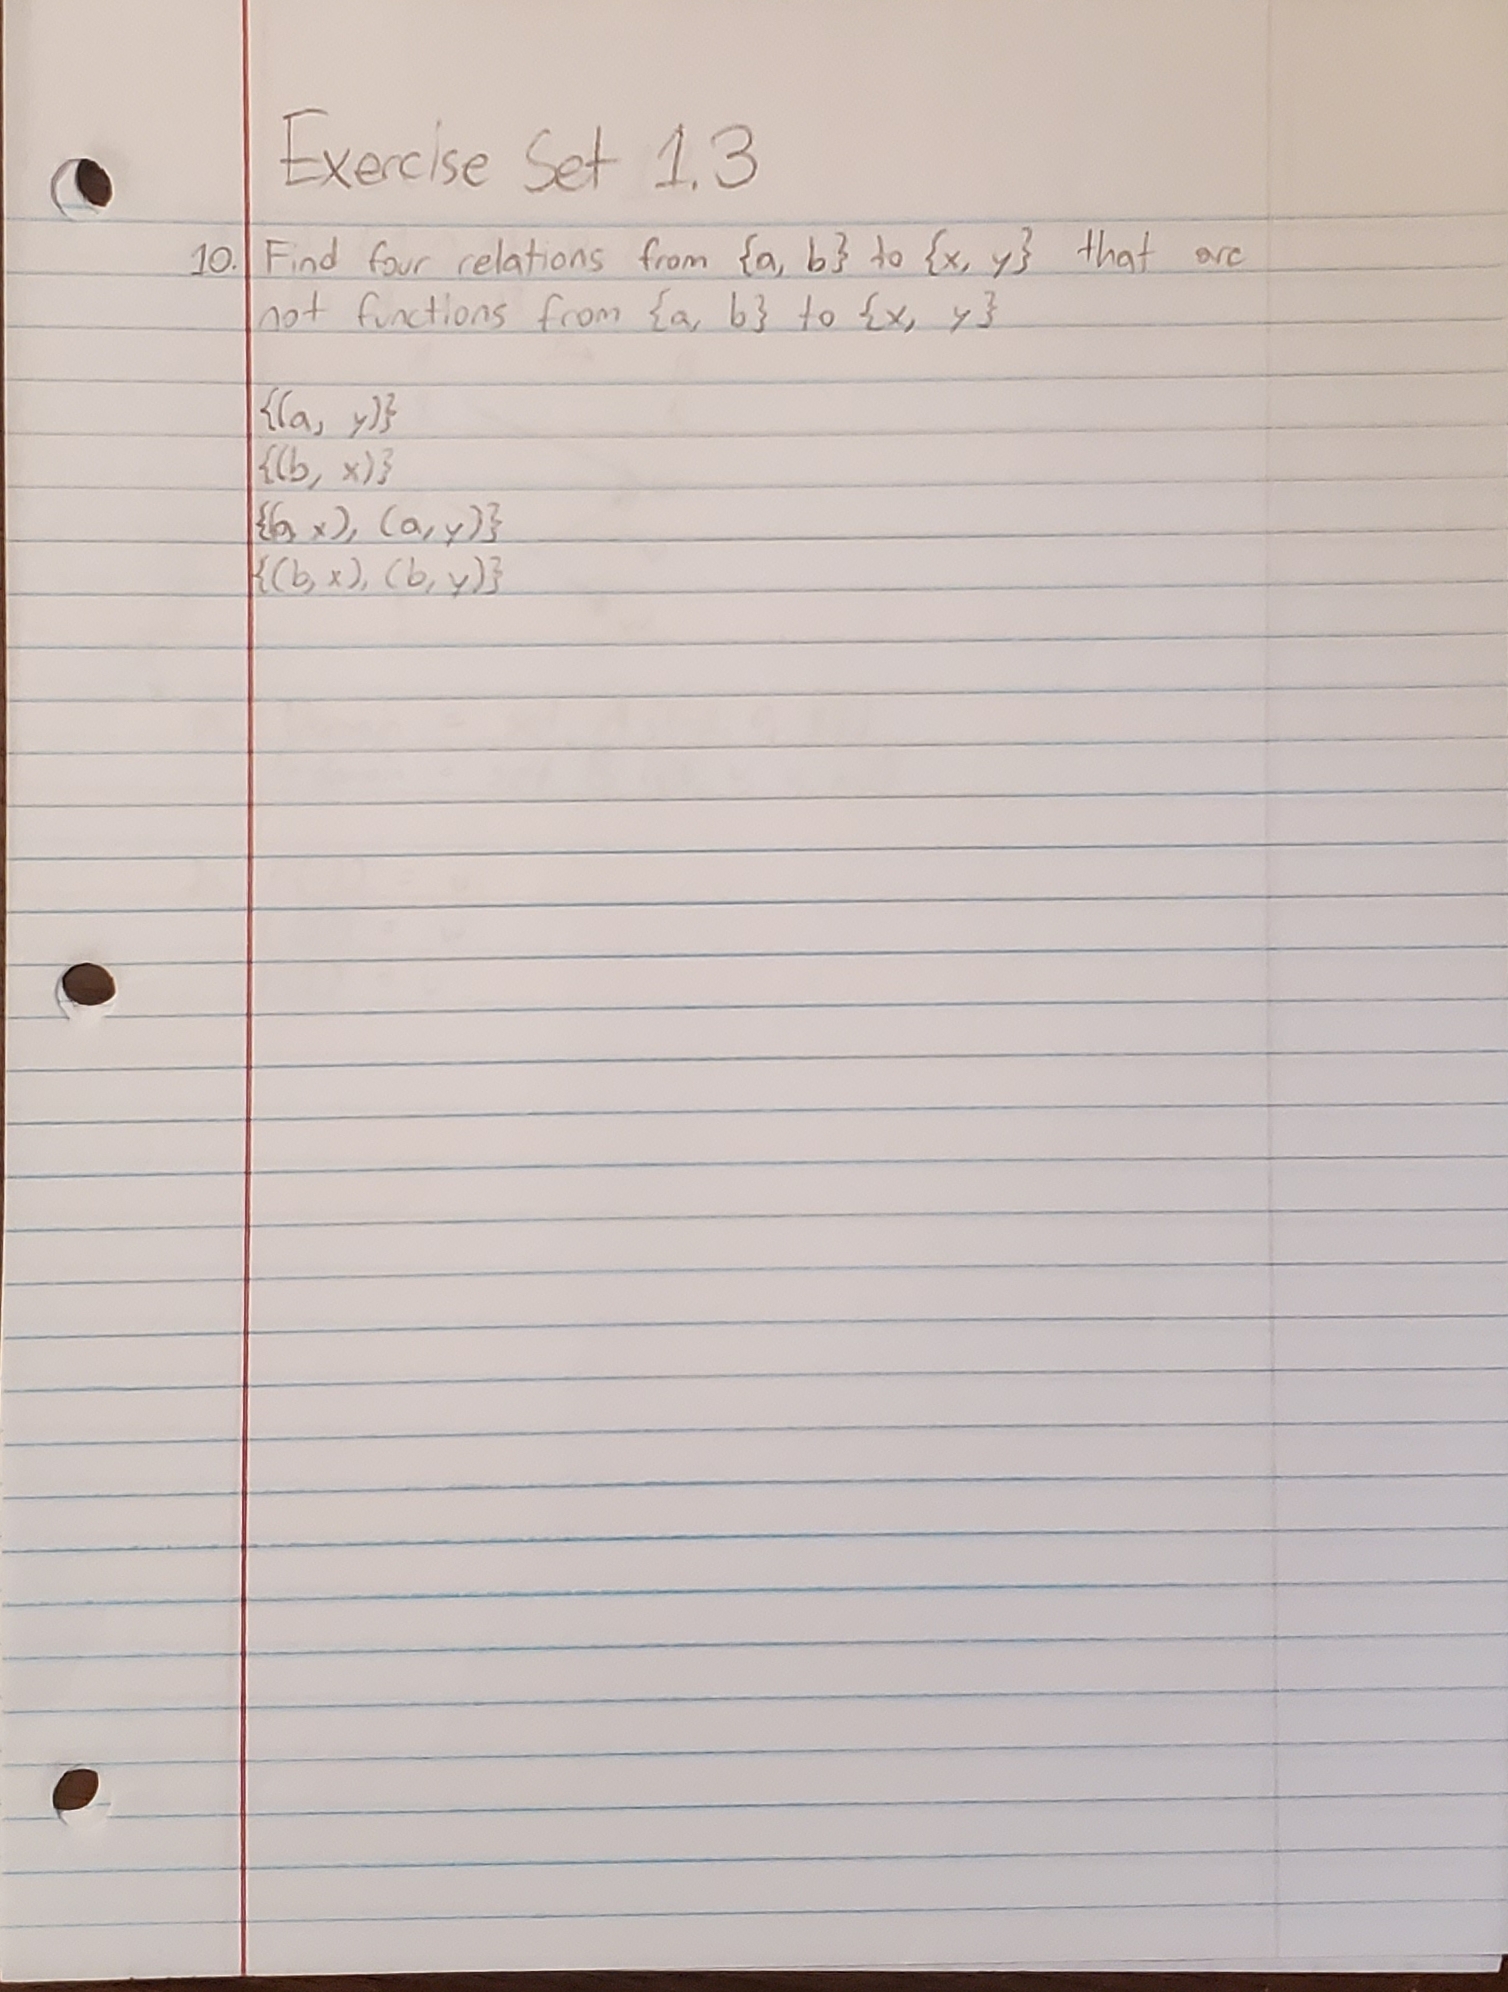 Exercise Set 1.3
10. Find four relations from {a, b} to {x, y} that are
not functions from {a, b} to {x, y}
{(a, y)}
{(b, x)}
{(a, x), (a, y)}
{(b, x), (b, y)}